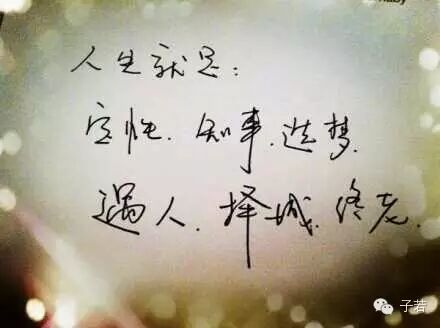 人生就是:
定性.知事.造梦.
遇人.择城.终老.
子若